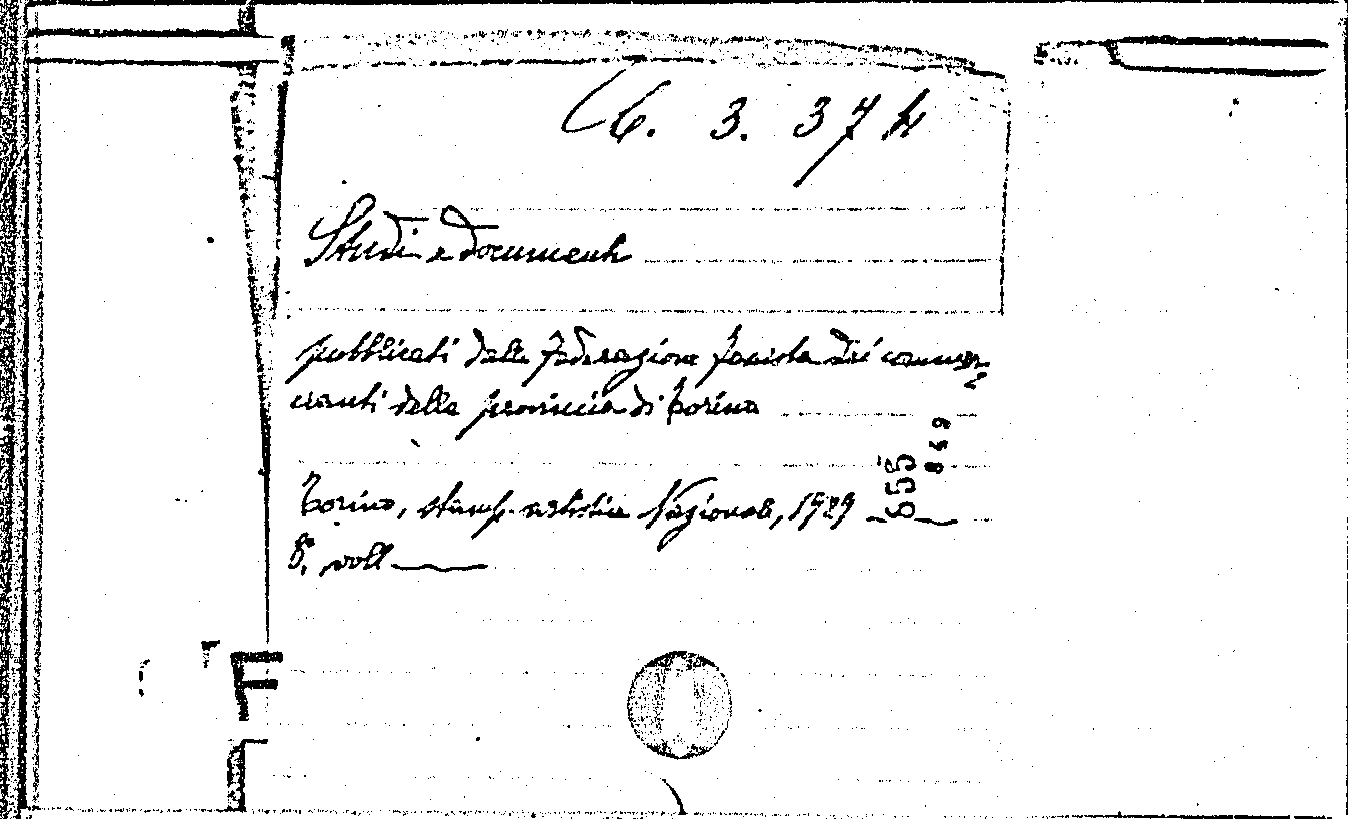 6. 3. 37
Studi e documenti
pubblicati dalla Federazione fascista dei commer-
cianti della provincia di Torino
Torino, stamp. artistica Nazionale, 1929
8°, voll
555
869